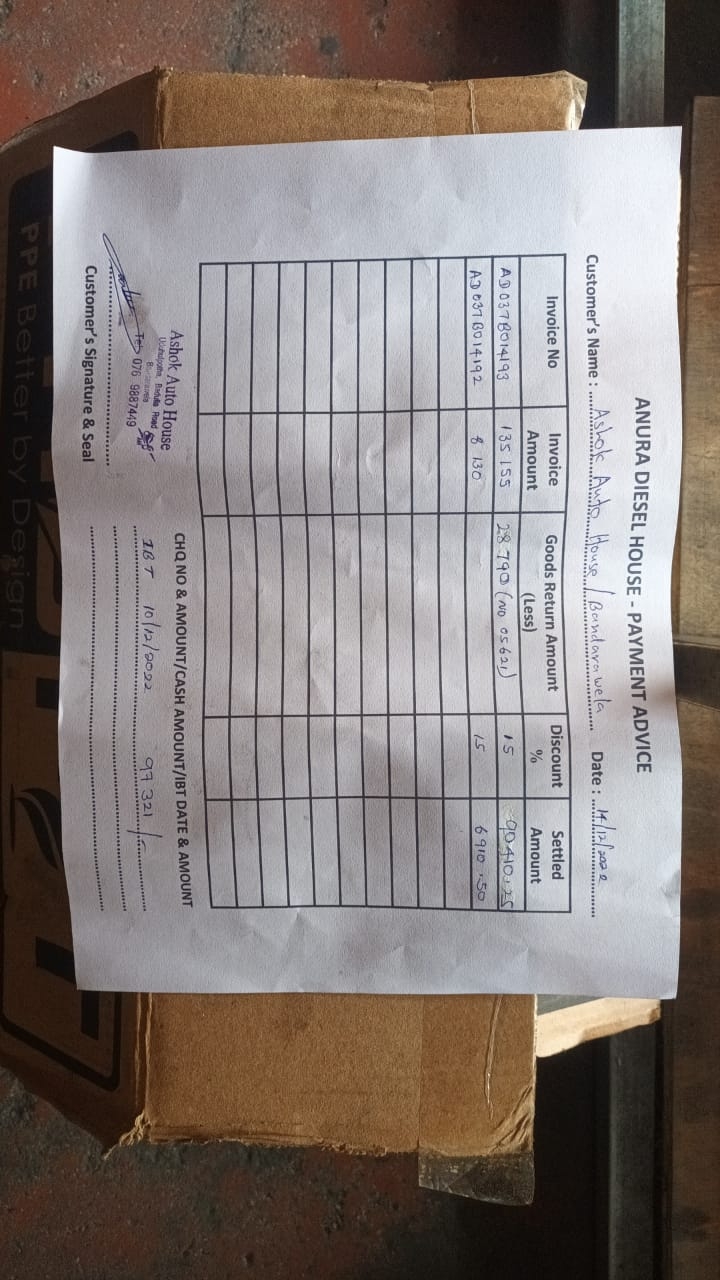 ANURA DIESEL HOUSE - PAYMENT ADVICE
Customer's Name : Ashok Auto House / Bandarawela Date : 14/12/2022
Invoice No Invoice Amount Goods Return Amount (Less) Discount % Settled Amount
AD037B014193 135 155 28 790 (No 05621) 15 90410.25
AD037B014192 8 130 15 6910.50
CHQ NO & AMOUNT/CASH AMOUNT/IBT DATE & AMOUNT
IBT 10/12/2022 97 321/-
Ashok Auto House
Badulla Road
Bandarawela
Tel: 076 9887449
Customer's Signature & Seal
PPE Better by Design